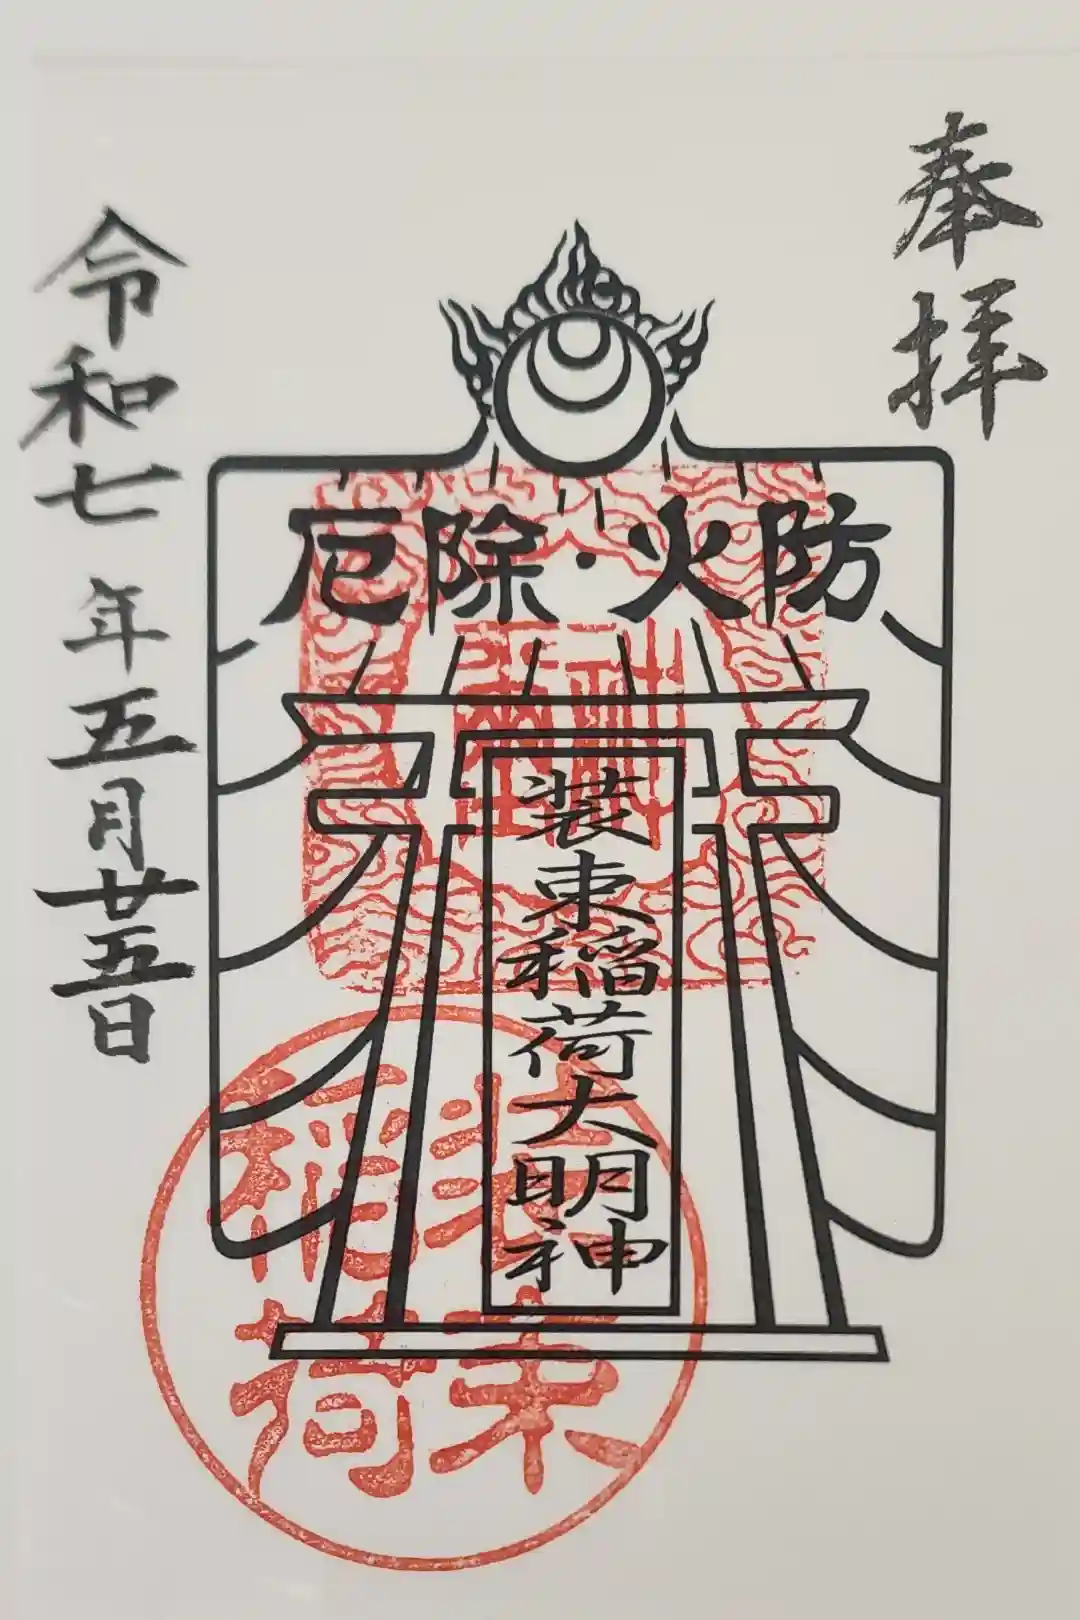 奉拝
厄除・火防
装束稲荷大明神
令和七年五月廿五日
装束
稲荷